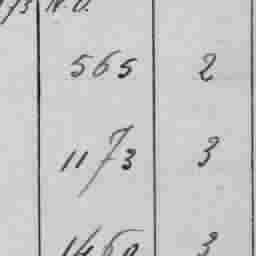 N.O.
565 2
1173 3
1460 3